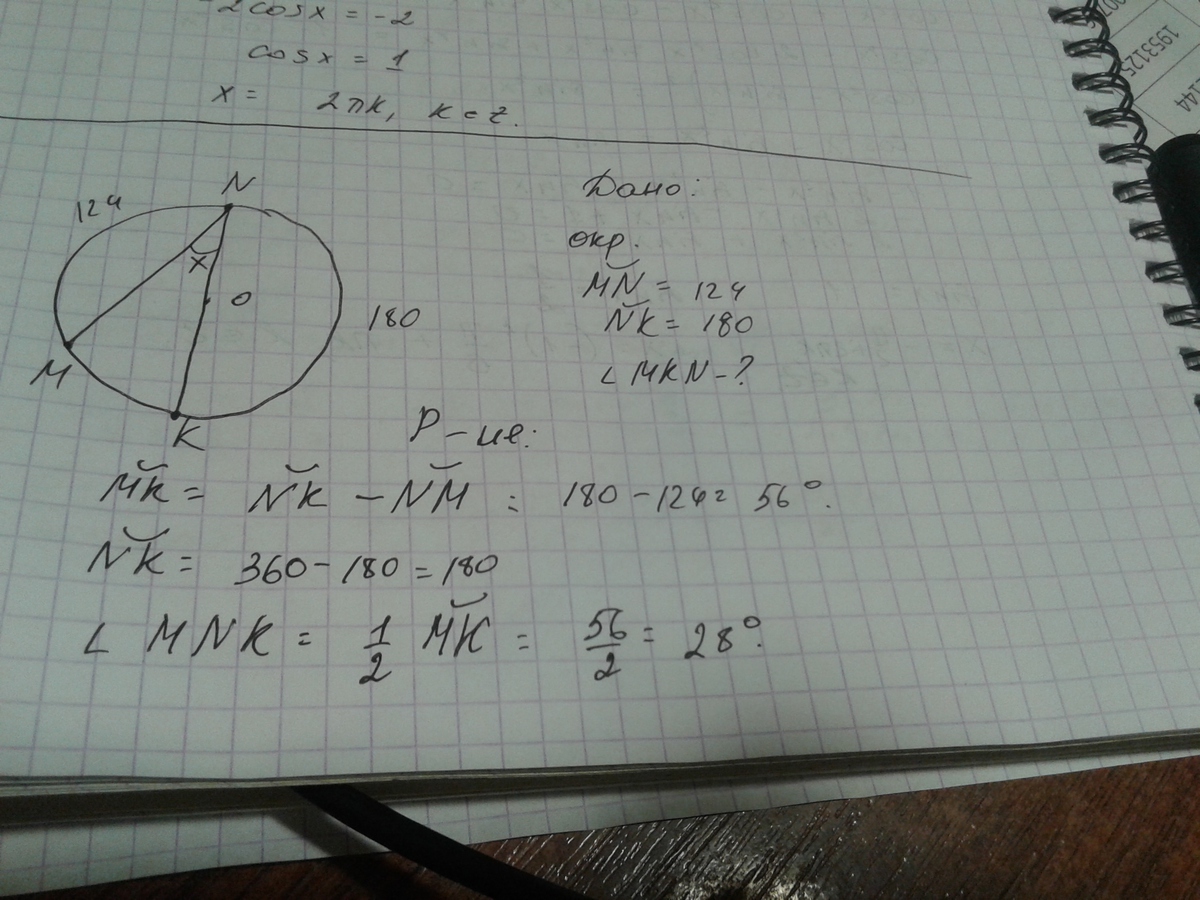 -2cosx = -2
cosx = 1
x = 2πk, k = z.
1953125
144
N
124
x
O
180
M
K
Дано:
окр.
M͝N = 124
N͝K = 180
∠ MKN - ?
Р-ие:
M͝K = N͝K - N͝M = 180 - 124 = 56°.
N͝K = 360 - 180 = 180
∠ MNK = 1/2 M͝K = 56/2 = 28°.